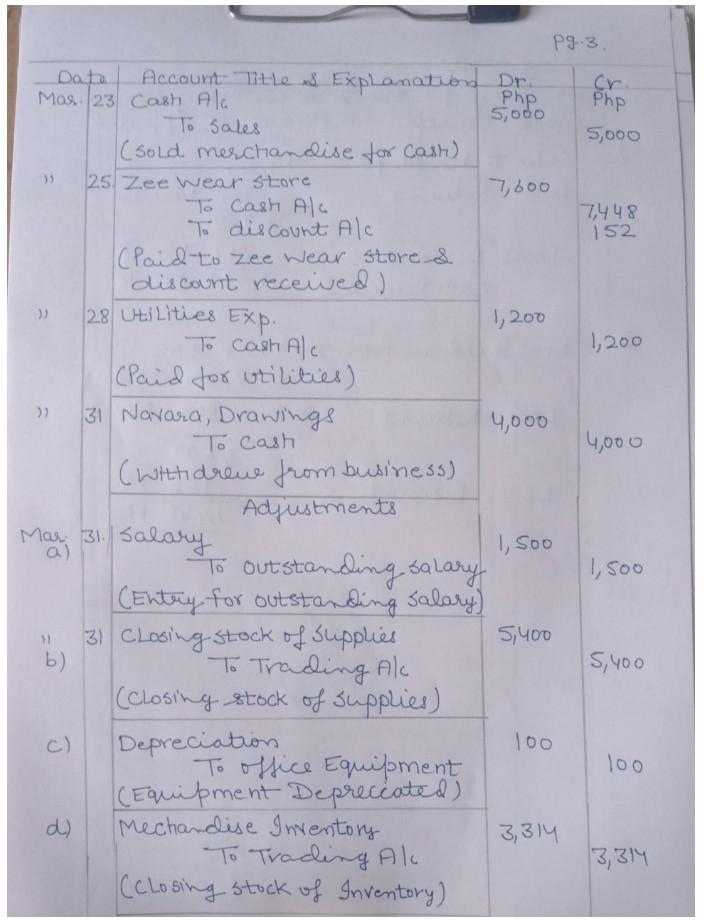 Pg.3.
Date Account Title & Explanation Dr. Cr.
Mar. 23 Cash A/c Php Php
5,000
To Sales 5,000
(Sold merchandise for Cash)
" 25. Zee Wear Store 7,600
To Cash A/c 7,448
To discount A/c 152
(Paid to Zee Wear Store &
discount received)
" 28 Utilities Exp. 1,200
To Cash A/c 1,200
(Paid for utilities)
" 31 Navara, Drawings 4,000
To Cash 4,000
(Withdrew from business)
Adjustments
Mar. 31. Salary 1,500
a) To Outstanding Salary 1,500
(Entry for outstanding Salary)
" 31 Closing Stock of Supplies 5,400
b) To Trading A/c 5,400
(Closing stock of Supplies)
c) Depreciation 100
To office Equipment 100
(Equipment Depreciated)
d) Mechandise Inventory 3,314
To Trading A/c 3,314
(Closing stock of Inventory)